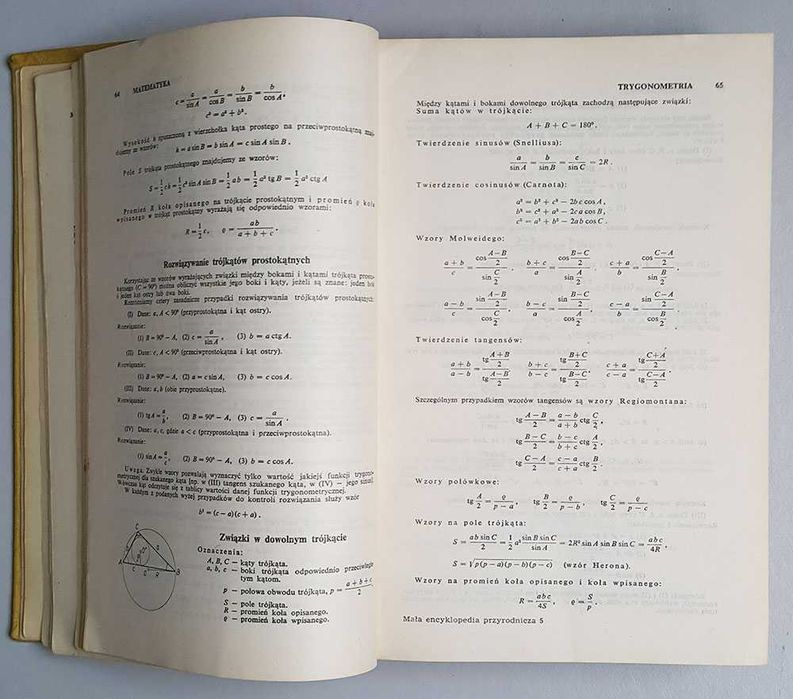 64 MATEMATYKA
c = a/sin A = a/cos B = b/sin B = b/cos A,
c² = a² + b².
Wysokość h spuszczoną z wierzchołka kąta prostego na przeciwprostokątną znaj-
dujemy ze wzorów:
h = a sin B = b sin A = c sin A sin B.
Pole S trójkąta prostokątnego znajdujemy ze wzorów:
S = 1/2 ch = 1/2 c² sin A sin B = 1/2 ab = 1/2 a² tg B = 1/2 a² ctg A
Promień R koła opisanego na trójkącie prostokątnym i promień ϱ koła
wpisanego w trójkąt prostokątny wyrażają się odpowiednio wzorami:
R = 1/2 c, ϱ = ab/(a + b + c).
Rozwiązywanie trójkątów prostokątnych
Korzystając ze wzorów wyrażających związki między bokami i kątami trójkąta prosto-
kątnego (C = 90°) można obliczyć wszystkie jego boki i kąty, jeżeli są znane: jeden bok
i jeden kąt ostry lub dwa boki.
Rozróżniamy cztery zasadnicze przypadki rozwiązywania trójkątów prostokątnych:
(I) Dane: a, A < 90° (przyprostokątna i kąt ostry).
Rozwiązanie:
(1) B = 90° − A, (2) c = a/sin A, (3) b = a ctg A.
(II) Dane: c, A < 90° (przeciwprostokątna i kąt ostry).
Rozwiązanie:
(1) B = 90° − A, (2) a = c sin A, (3) b = c cos A.
(III) Dane: a, b (obie przyprostokątne).
Rozwiązanie:
(1) tg A = a/b, (2) B = 90° − A, (3) c = a/sin A.
(IV) Dane: a, c, gdzie a < c (przyprostokątna i przeciwprostokątna).
Rozwiązanie:
(1) sin A = a/c, (2) B = 90° − A, (3) b = c cos A.
Uwaga. Zwykle wzory pozwalają wyznaczyć tylko wartość jakiejś funkcji trygono-
metrycznej dla szukanego kąta [np. w (III) tangens szukanego kąta, w (IV) — jego sinus].
Wówczas kąt odczytuje się z tablicy wartości danej funkcji trygonometrycznej.
W każdym z podanych wyżej przypadków do kontroli rozwiązania służy wzór
b² = (c − a)(c + a).
Związki w dowolnym trójkącie
Oznaczenia:
A, B, C — kąty trójkąta.
a, b, c — boki trójkąta odpowiednio przeciwległe
tym kątom.
p — połowa obwodu trójkąta, p = (a + b + c)/2
S — pole trójkąta.
R — promień koła opisanego.
ϱ — promień koła wpisanego.
C
A
B
TRYGONOMETRIA 65
Między kątami i bokami dowolnego trójkąta zachodzą następujące związki:
Suma kątów w trójkącie:
A + B + C = 180°.
Twierdzenie sinusów (Snelliusa):
a/sin A = b/sin B = c/sin C = 2R.
Twierdzenie cosinusów (Carnota):
a² = b² + c² − 2bc cos A,
b² = c² + a² − 2ca cos B,
c² = a² + b² − 2ab cos C.
Wzory Molweidego:
(a + b)/c = cos (A−B)/2 / sin C/2, (b + c)/a = cos (B−C)/2 / sin A/2, (c + a)/b = cos (C−A)/2 / sin B/2,
(a − b)/c = sin (A−B)/2 / cos C/2, (b − c)/a = sin (B−C)/2 / cos A/2, (c − a)/b = sin (C−A)/2 / cos B/2.
Twierdzenie tangensów:
(a + b)/(a − b) = tg (A+B)/2 / tg (A−B)/2, (b + c)/(b − c) = tg (B+C)/2 / tg (B−C)/2, (c + a)/(c − a) = tg (C+A)/2 / tg (C−A)/2.
Szczególnym przypadkiem wzorów tangensów są wzory Regiomontana:
tg (A − B)/2 = (a − b)/(a + b) ctg C/2,
tg (B − C)/2 = (b − c)/(b + c) ctg A/2,
tg (C − A)/2 = (c − a)/(c + a) ctg B/2.
Wzory połówkowe:
tg A/2 = ϱ/(p − a), tg B/2 = ϱ/(p − b), tg C/2 = ϱ/(p − c)
Wzory na pole trójkąta:
S = ab sin C/2 = 1/2 a² sin B sin C/sin A = 2R² sin A sin B sin C = abc/4R,
S = √p(p − a)(p − b)(p − c) (wzór Herona).
Wzory na promień koła opisanego i koła wpisanego:
R = abc/4S, ϱ = S/p.
Mała encyklopedia przyrodnicza 5